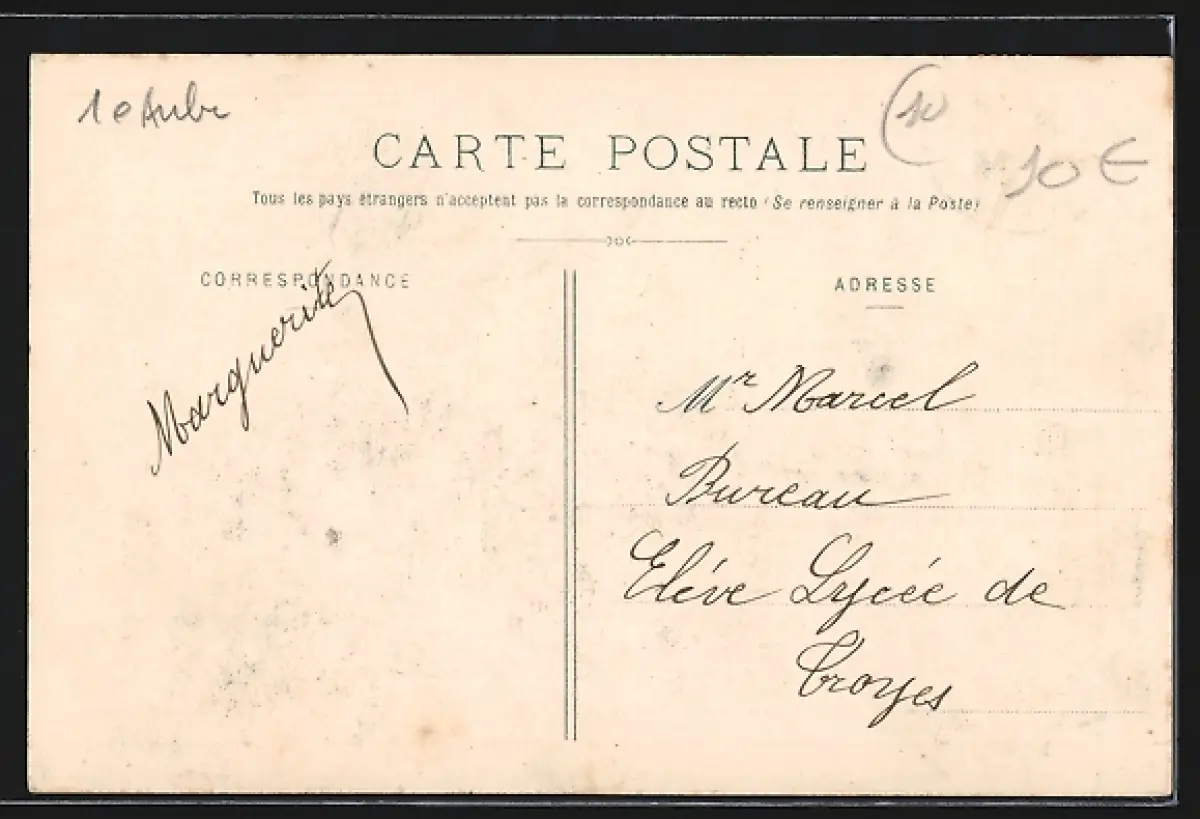 10 Aube
(10
10 €
CARTE POSTALE
Tous les pays étrangers n'acceptent pas la correspondance au recto (Se renseigner à la Poste)
CORRESPONDANCE
Marguerite
ADRESSE
Mr Marcel
Bureau
Elève Lycée de
Troyes